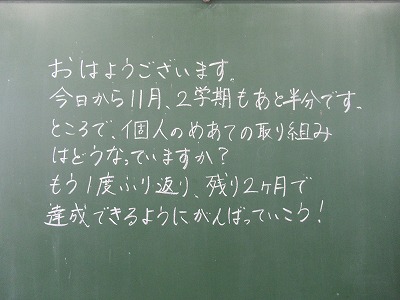 おはようございます。
今日から11月、2学期もあと半分です。
ところで、個人のめあての取り組み
はどうなっていますか？
もう1度ふり返り、残り2ヶ月で
達成できるようにがんばっていこう！